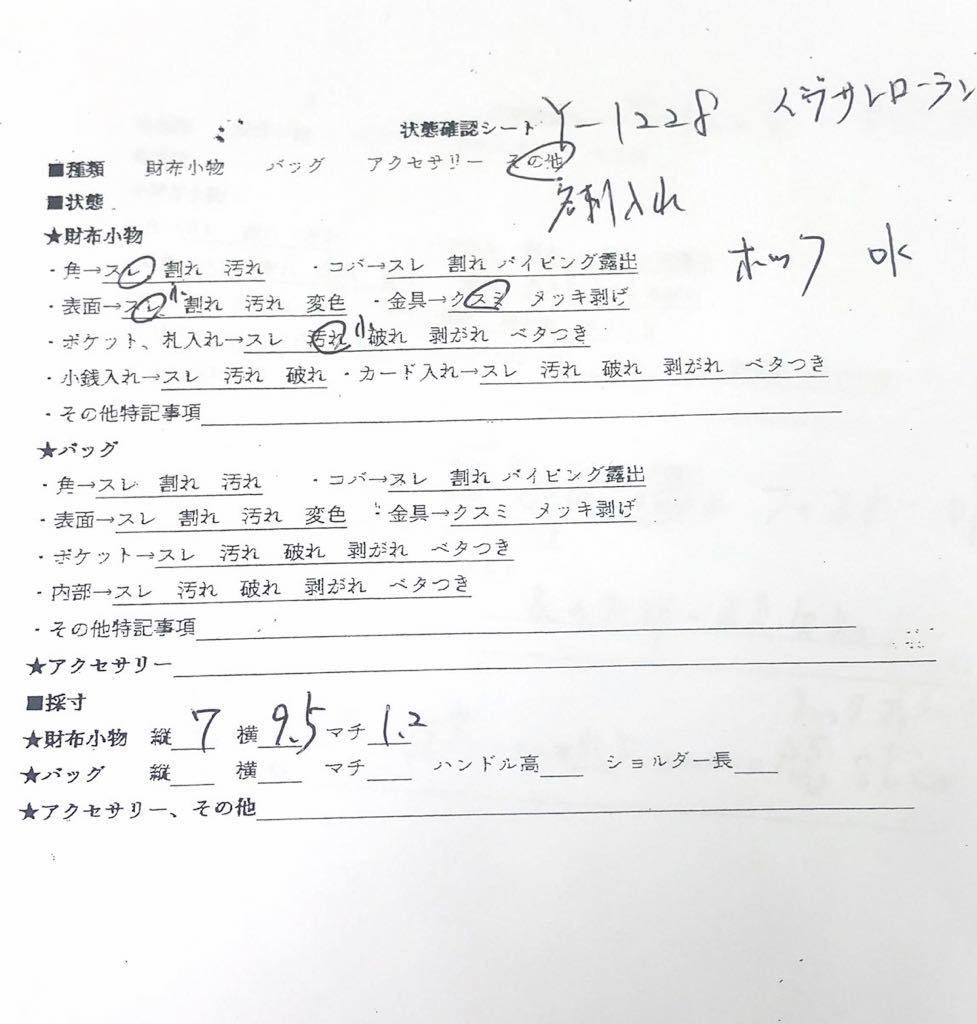 状態確認シート Y-1228 イヴサンローラン
■種類 財布小物 バッグ アクセサリー その他
■状態 名刺入れ
★財布小物
・角→スレ 割れ 汚れ ・コバ→スレ 割れ パイピング露出 ホック
・表面→スレ 小 割れ 汚れ 変色 ・金具→クスミ メッキ剥げ
・ポケット、札入れ→スレ 汚れ 小 破れ 剥がれ ベタつき
・小銭入れ→スレ 汚れ 破れ ・カード入れ→スレ 汚れ 破れ 剥がれ ベタつき
・その他特記事項
★バッグ
・角→スレ 割れ 汚れ ・コバ→スレ 割れ パイピング露出
・表面→スレ 割れ 汚れ 変色 ・金具→クスミ メッキ剥げ
・ポケット→スレ 汚れ 破れ 剥がれ ベタつき
・内部→スレ 汚れ 破れ 剥がれ ベタつき
・その他特記事項
★アクセサリー
■採寸
★財布小物 縦 7 横 9.5 マチ 1.2
★バッグ 縦 横 マチ ハンドル高 ショルダー長
★アクセサリー、その他